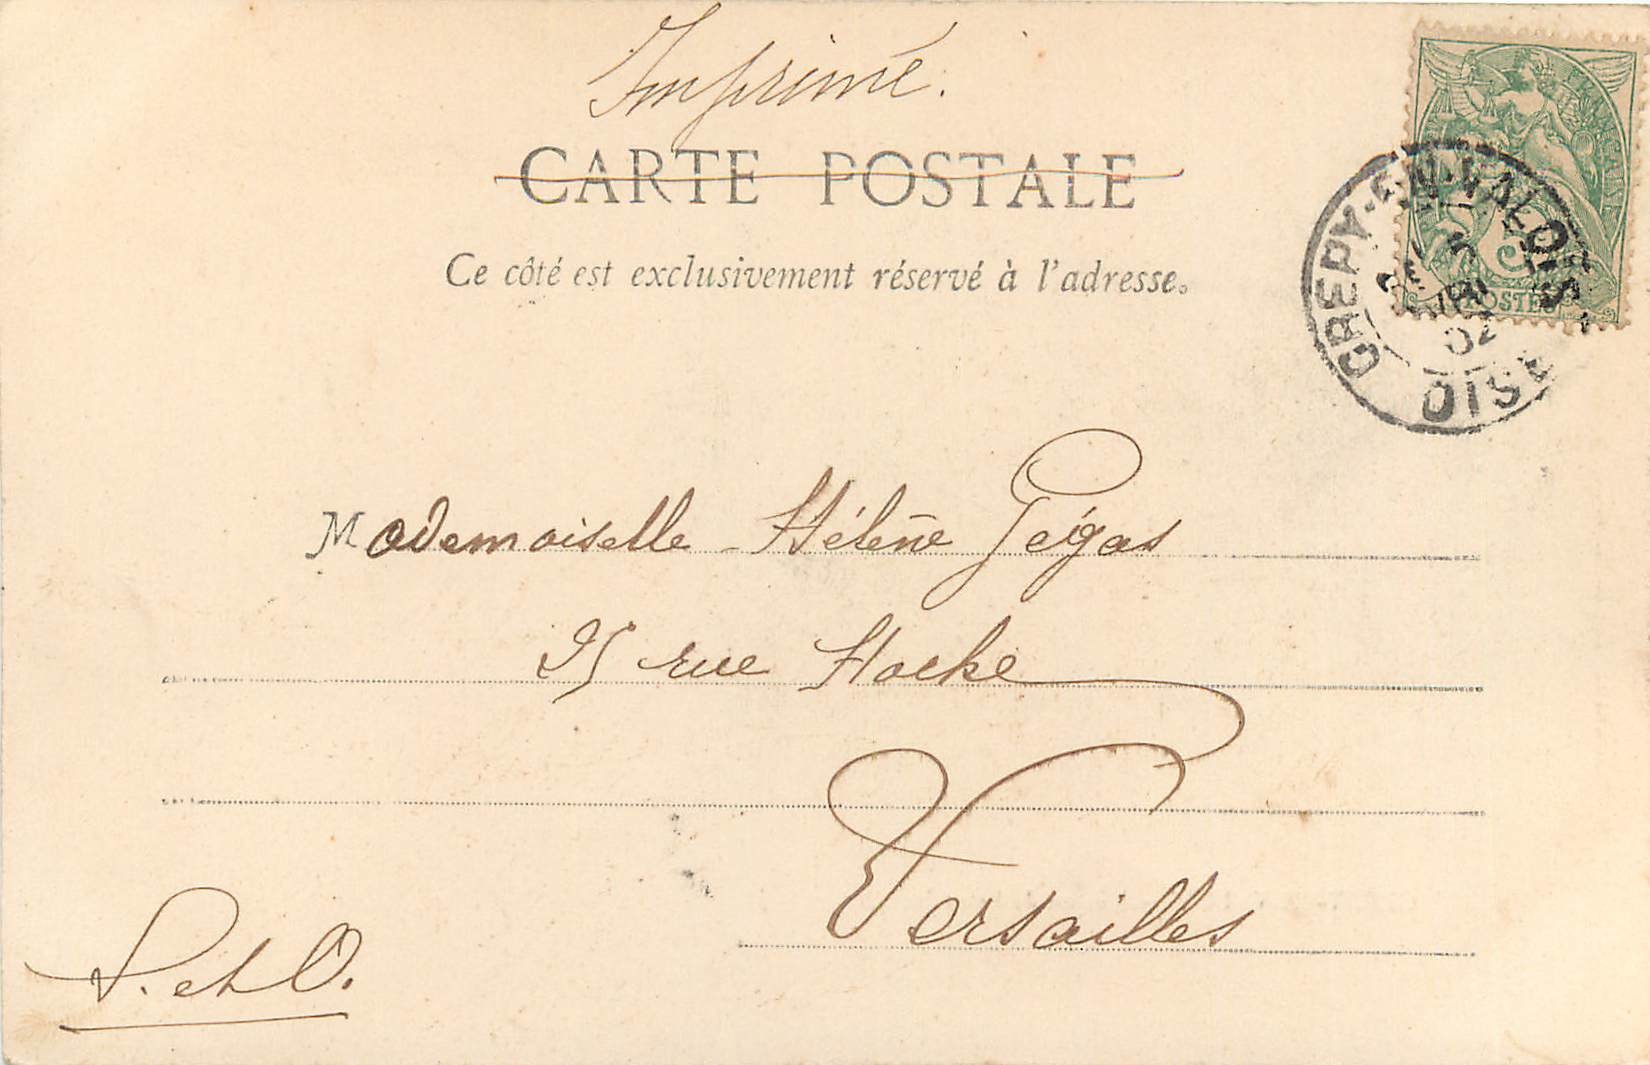 Imprimé.
CARTE POSTALE
Ce côté est exclusivement réservé à l'adresse.
CREPY-EN-VALOIS
02
OISE
5
POSTES
Mademoiselle Hélène Pégas
25 rue Hocke
Versailles
S. et O.